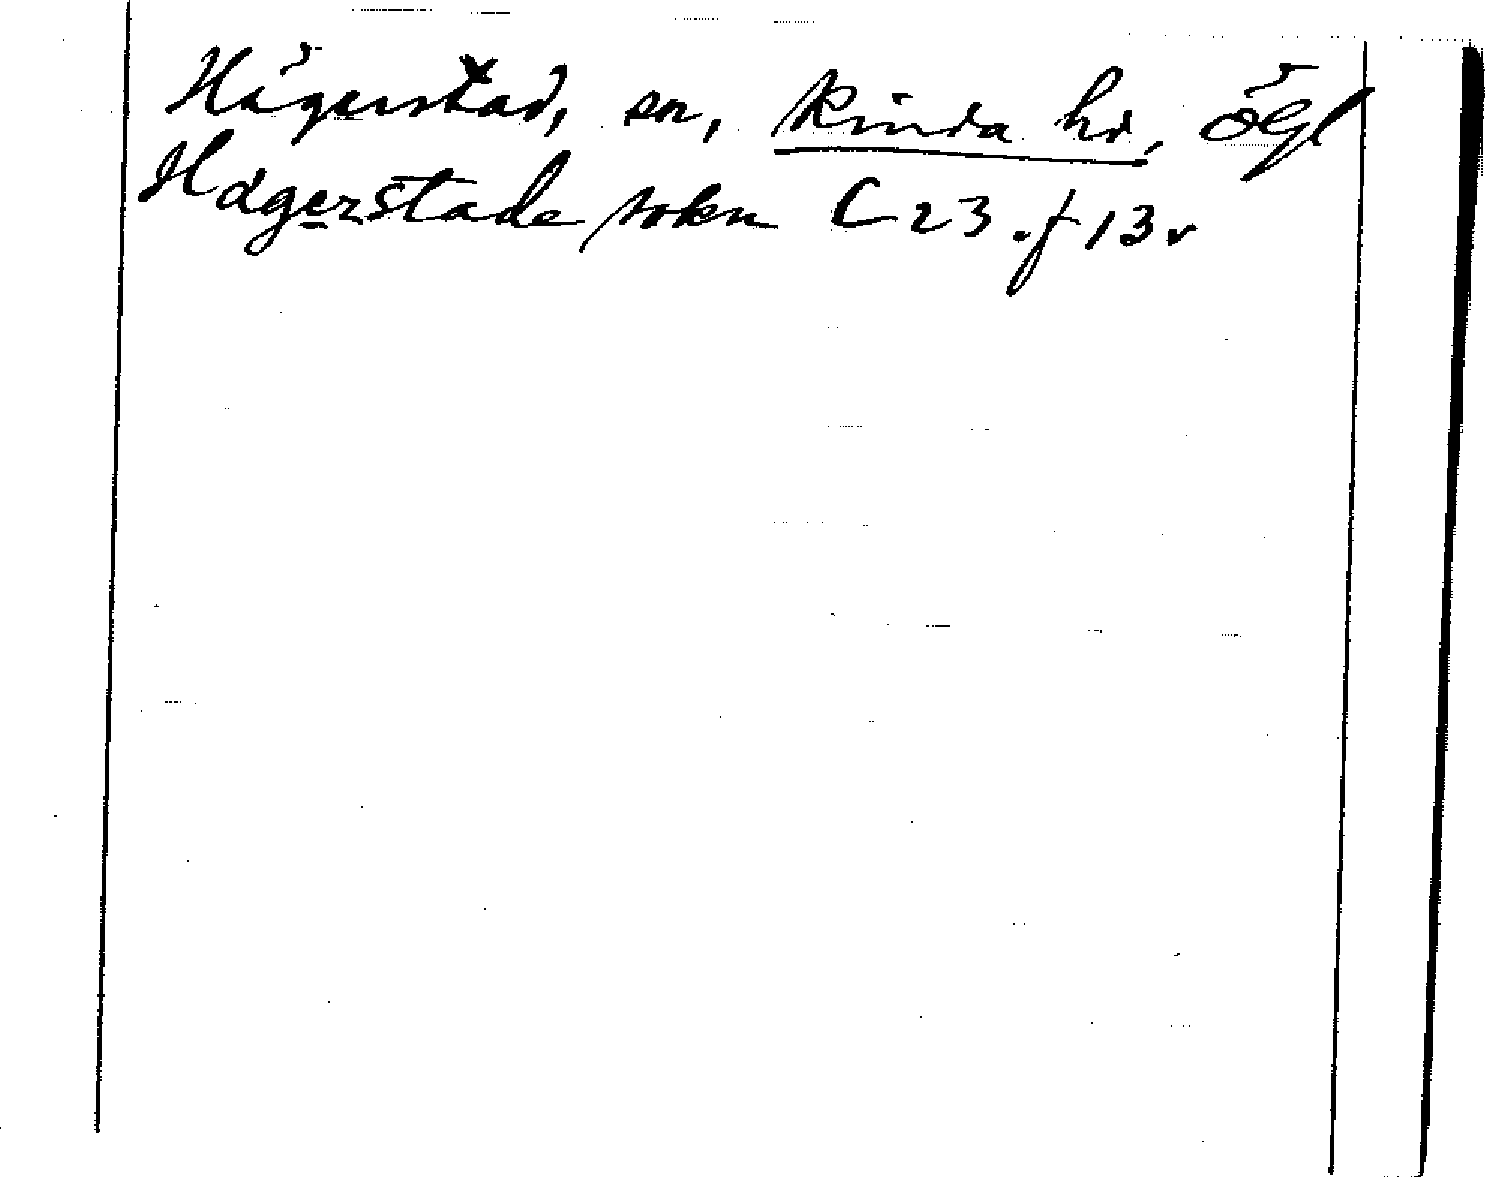 Hägerstad, sn, Kinda hd, Ögl
Hägerstade sokn C 23 . f 13v